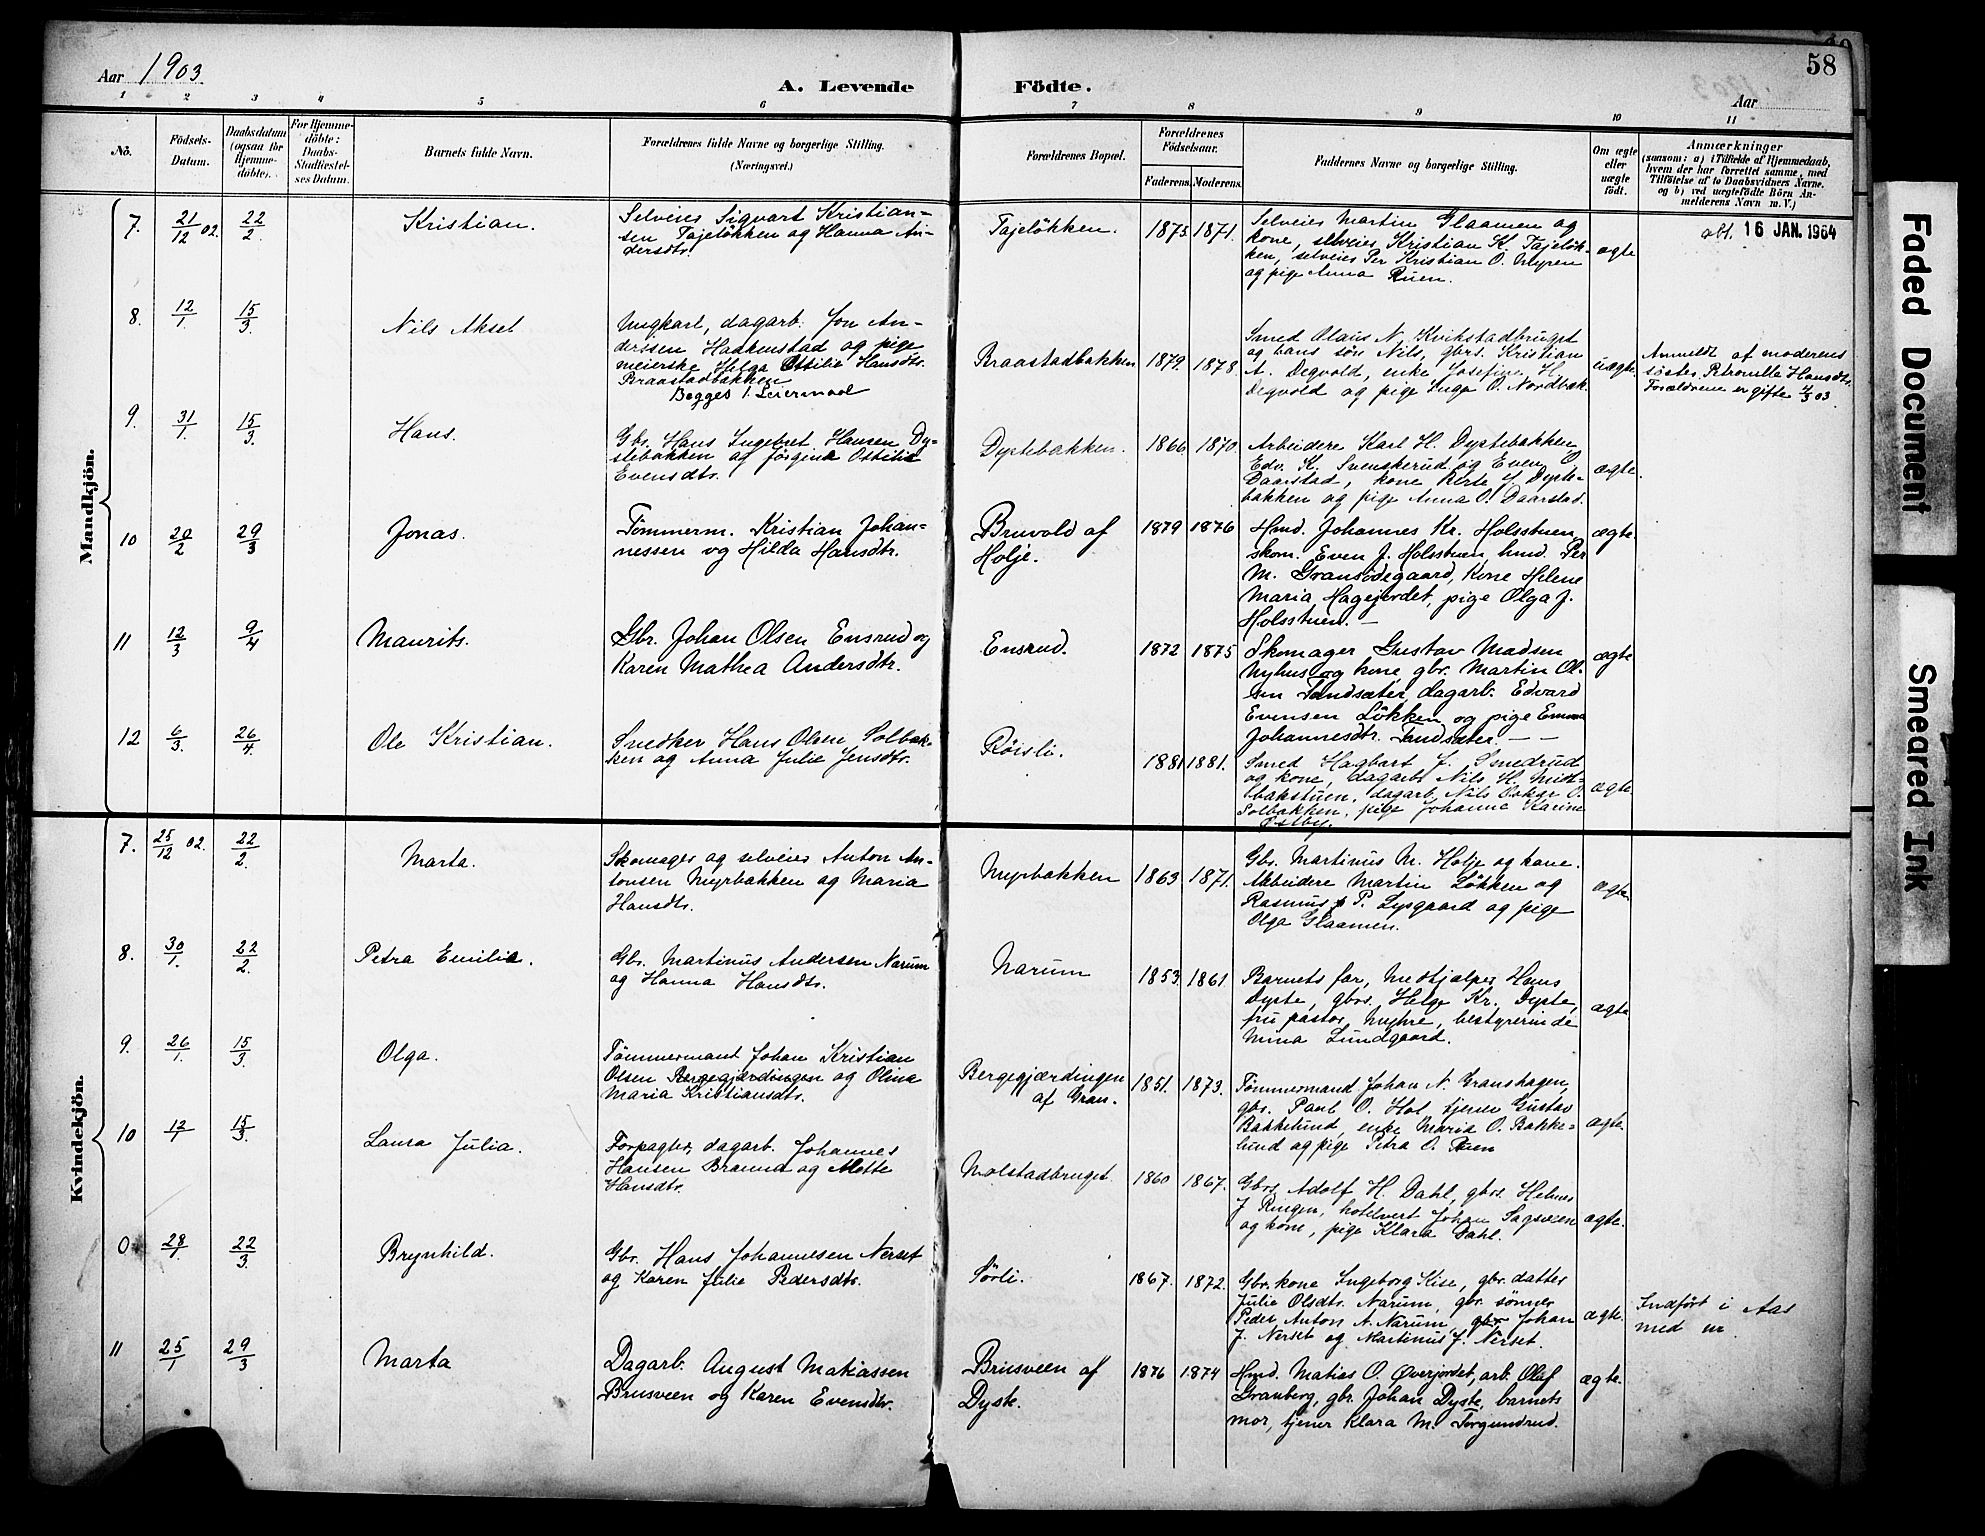 Aar 1903
A. Levende Födte.
58
Aar
1 2 3 4 5 6 7 8 9 10 11
No.
Födsels-Datum.
Daabsdatum (ogsaa for Hjemme-döbte).
For Hjemme-döbte: Daabs-Stadfæstel-ses Datum.
Barnets fulde Navn.
Forældrenes fulde Navne og borgerlige Stilling. (Næringsvei.)
Forældrenes Bopæl.
Forældrenes Födselsaar.
Faderens. Moderens.
Faddernes Navne og borgerlige Stilling.
Om ægte eller uægte födt.
Anmærkninger
(saasom: a) i Tilfælde af Hjemmedaab,
hvem der har forrettet samme, med
Tilföielse af to Daabsvidners Navne,
og b) ved uægtefödte Börn An-
melderens Navn m. V.)
Mandkjön.
7. 21/12 02. 22/2 Kristian.
Selveier Sigvart Kristian-
sen Tajeløkken og Hanna An-
dersdtr.
Tajeløkken. 1875. 1871.
Selveier Martin Glaamen og
kone, selveier Kristian K. Tajeløk-
ken, selveier Per Kristian O.
og pige Anna Ruen.
ægte
abt. 16 JAN. 1964
8. 12/1. 15/3. Nils Aksel
Ungkarl, dagarb. Jon An-
derssen Haakenstad og pige
meierske Helga Ottilie Hansdtr.
Braastadbakken
Begges 1. Leiermaal
Braastadbakken 1879. 1878.
Smed Olaus N. Kvikstadbruget
og hans søn Nils, gbrs. Kristian
A. Degvold, enke Josefine H.
Degvold og pige Inga O. Nordbak.
uægte
Anmeldt af moderens
søster Petronelle Hansdtr.
Forældrene er gifte 03.
9. 31/1. 15/3. Hans.
Gbr. Hans Ingebret Hansen Dy-
stebakken og Jørgine Ottilie
Evensdtr.
Dystebakken. 1866 1870.
Arbeidere Karl H. Dystebakken,
Edv. K. Svenskerud og Even O.
Daarstad, kone Berte H. Dyste-
bakken og pige Anna O. Daarstad.
ægte.
10 20/2 29/3 Jonas.
Tømmerm. Kristian Johan-
nessen og Hilda Hansdtr.
Bruvold af
Holje.
1879 1876
Hmd. Johannes Kr. Holsstuen,
skom. Even J. Holsstuen, hmd. Per
M. Gransødegaard, Kone Helene
Maria Hagejordet, pige Olga J.
Holsstuen. —
ægte.
11 12/3 9/4 Maurits.
Gbr. Johan Olsen Ensrud og
Karen Mathea Andersdtr.
Ensrud. 1872 1875
Skomager Gustav Madsen
Nyhus og kone, gbr. Martin Ol-
sen Tandsæter, dagarb. Edvard
Evensen Løkken og pige Emma
Johannesdtr. Tandsæter. — —
ægte
12 6/3. 26/4 Ole Kristian.
Snedker Hans Olsen Solbak-
ken og Anna Julie Jensdtr.
Röisli. 1881 1881.
Smed Hagbart J. Smedrud
og kone, dagarb. Nils H. Midt-
bakstuen, dagarb. Nils Oskar O.
Solbakken, pige Johanne Karine
Østby.
ægte.
Kvindekjön.
7. 25/12 02. 22/2. Marta.
Skomager og selveier Anton An-
tonsen Myrbakken og Maria
Hansdtr.
Myrbakken 1863 1871.
Gbr. Martinus M. Holje og kone.
Arbeidere Martin Løkken og
Rasmus P. Lysgaard og pige
Olga Glaamen.
ægte
8. 30/1. 22/2. Petra Emilie.
Gbr. Martinus Andersen Narum
og Hanna Hansdtr.
Narum 1853. 1861
Barnets far, Medhjælper Hans
Dyste, gbrs. Helge Kr. Dyste,
fru pastor Myhre, bestyrerinde
Mina Lundgaard.
ægte
9. 26/1. 15/3. Olga.
Tømmermand Johan Kristian
Olsen Bergegjærdingen og Olina
Maria Kristiansdtr.
Bergegjærdingen
af Gran.
1851. 1873.
Tømmermand Johan N. Granshagen,
gbr. Paul O. Hol tjener Gustav
Bakkelund, enke Maria O. Bakke-
lund og pige Petra O. Ruen
ægte.
10 12/1 15/3. Laura Julia.
Forpagter, dagarb. Johannes
Hansen Braund og Mette
Hansdtr.
Molstadbruget. 1860 1867.
Gbrs. Adolf H. Dahl, gbrs. Helmer
J. Ringen, hotelvert Johan Sagsveen
og kone, pige Klara Dahl.
ægte.
0 28/1. 22/3. Brynhild.
Gbr. Hans Johannesen Nerset
og Karen Julie Pedersdtr.
Sørli. 1867. 1872.
Gbr. kone Ingeborg Kise, gbr. datter
Julie Olsdtr. Narum, gbr. sønner
Peder Anton A. Narum, gbr Johan
J. Nerset og Martinus J. Nerset.
ægte.
Indført i Aas
med nr
11 25/1 29/3 Marta
Dagarb. August Matiassen
Brusveen og Karen Evensdtr.
Brusveen af
Dyste.
1876 1874
Hmd. Matias O. Øverjordet, arb. Olaf
Granberg, gbr. Johan Dyste, barnets
mor, tjener Klara M. Torgundrud.
ægte.
Faded Document
Smeared Ink